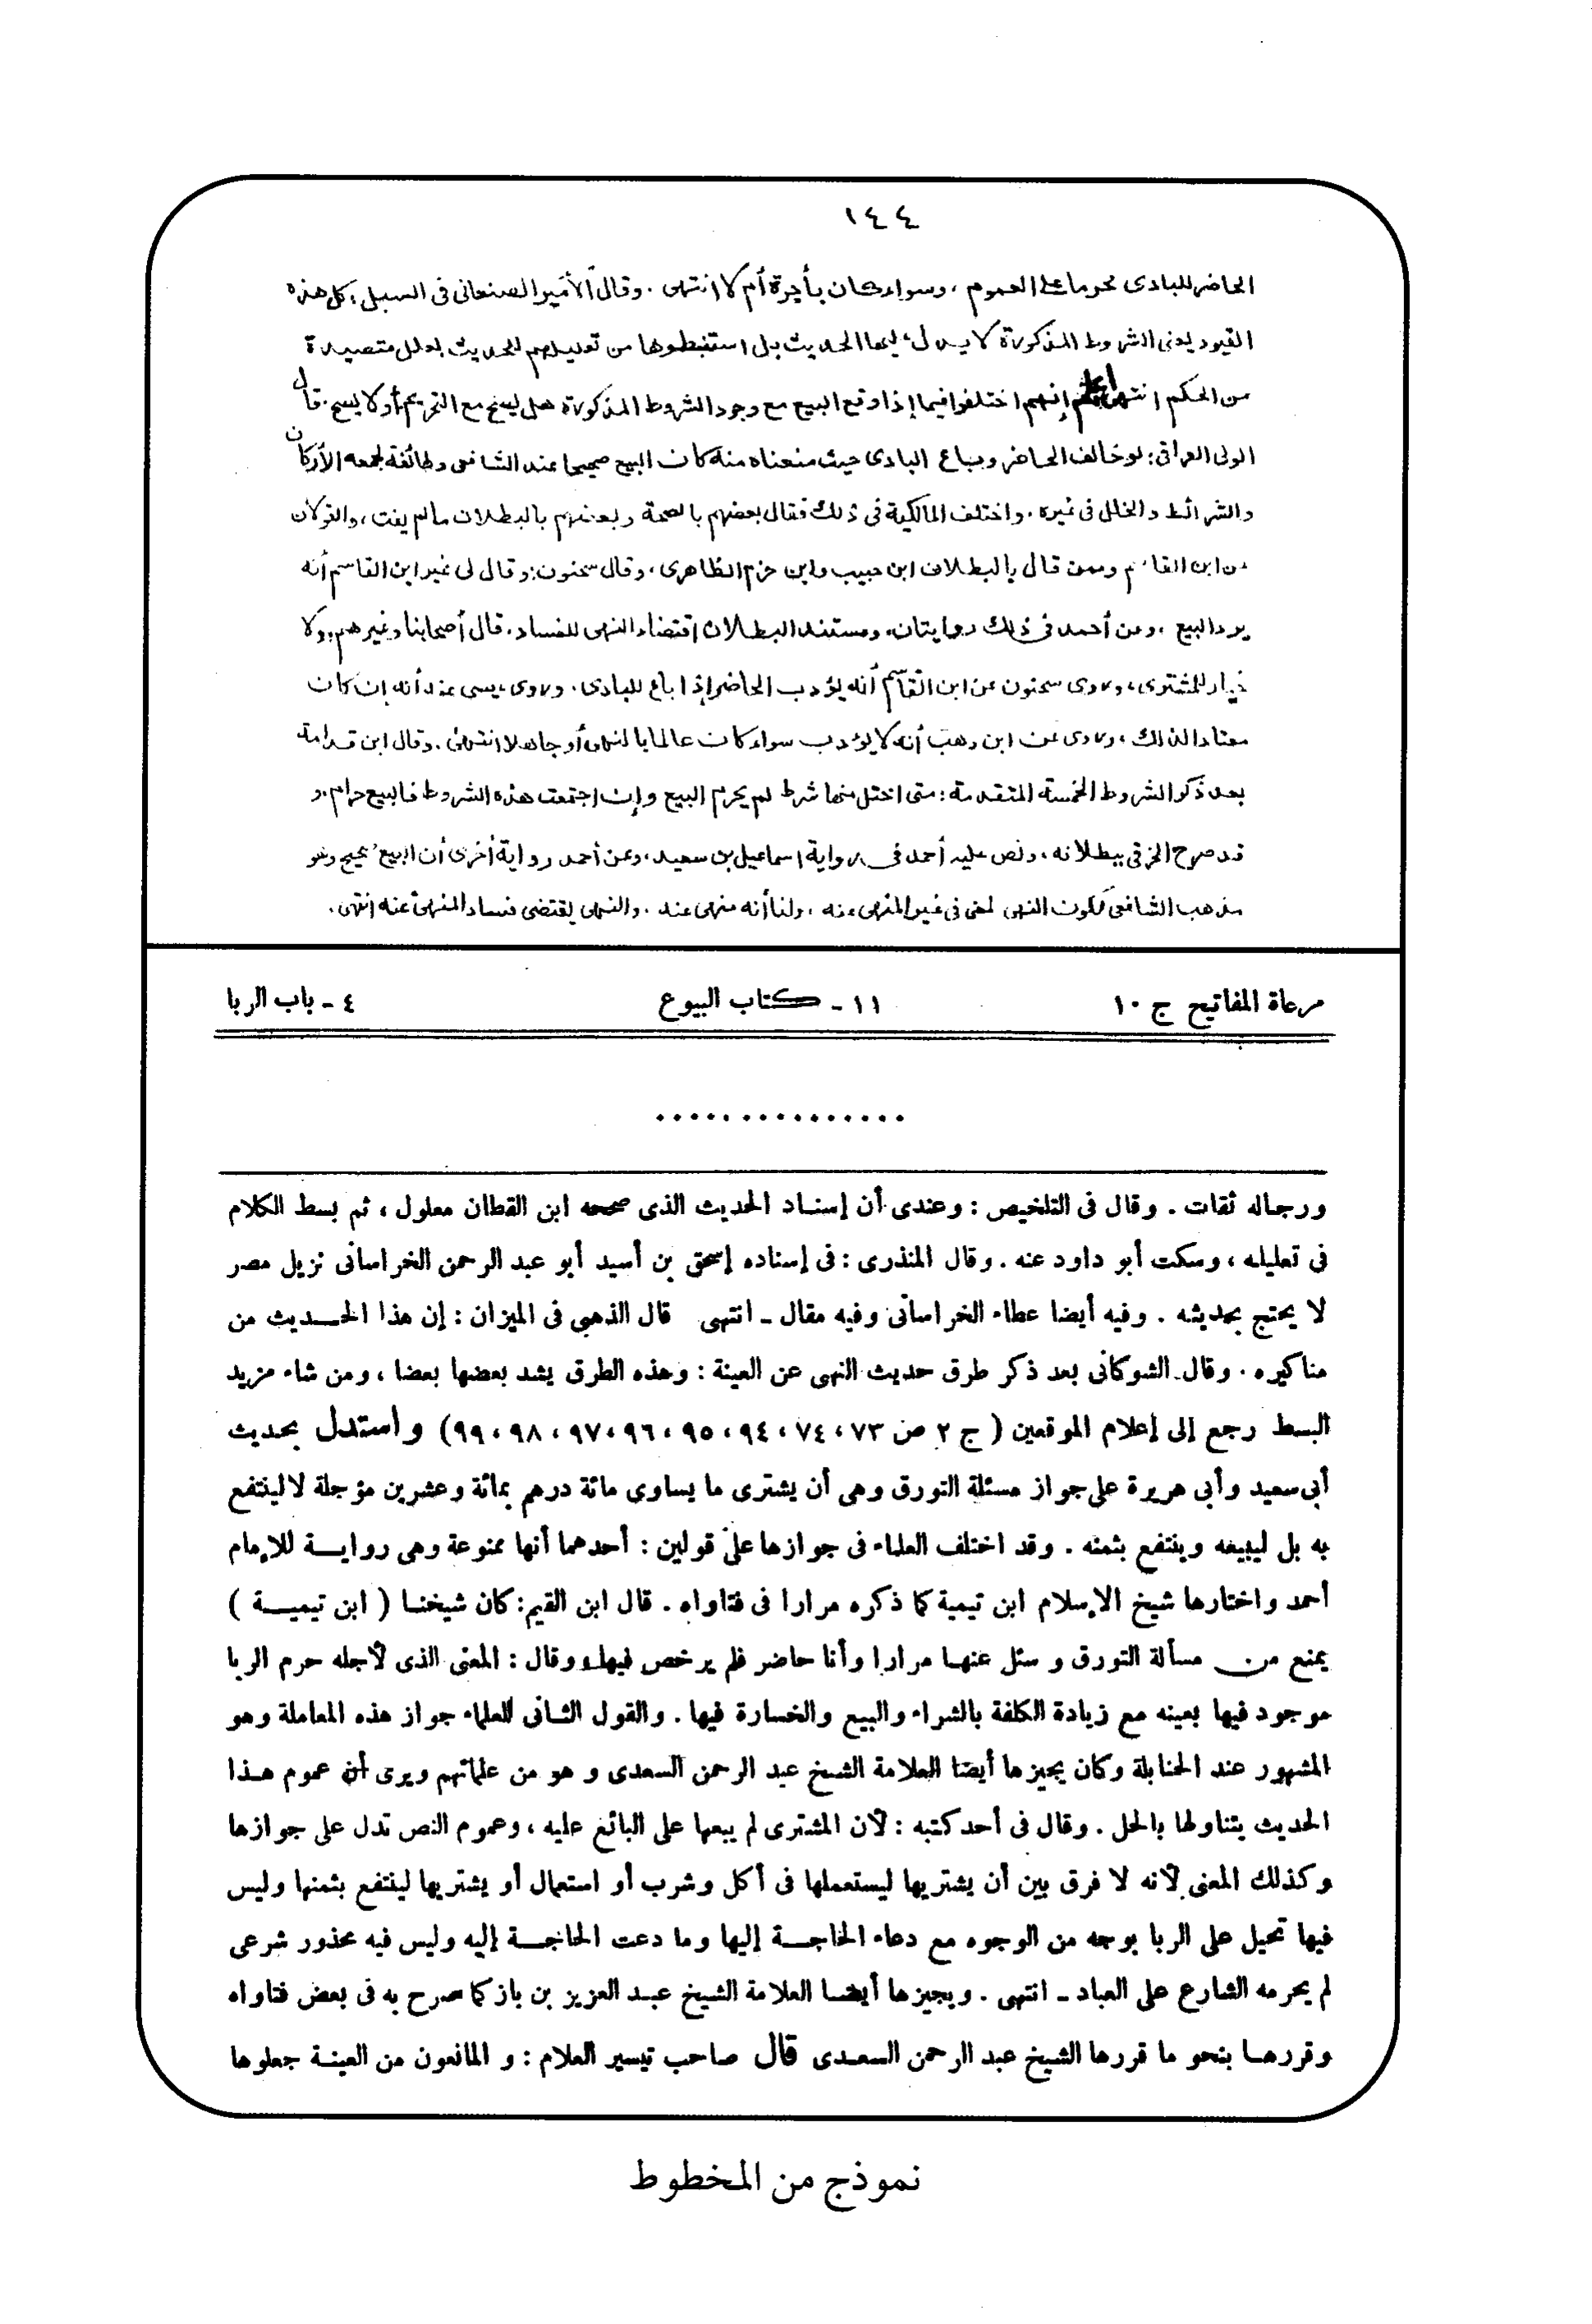 ١٤٤
الحاضر للبادى محرما على العموم ، وسواء كان بأجرة أم لا انتهى . وقال الأمير الصنعانى فى السبل : كل هذه
القيود يعنى الشروط المذكورة لا يدل عليها الحديث بل استنبطوها من تعليلهم للحديث بعلل متصيدة
من الحكم انتهى اعلم إنهم اختلفوا فيما إذا وقع البيع مع وجود الشروط المذكورة هل يصح مع التحريم أو لا يصح . قال
الولى العراقى : لو خالف الحاضر وباع البادى حيث منعناه منه كان البيع صحيحا عند الشافعى وطائفة لجمعه الأركان
والشرائط والخلل فى غيره . واختلف المالكية فى ذلك فقال بعضهم بالصحة وبعضهم بالبطلان ما لم يفت ، والقولان
عن ابن القاسم وممن قال بالبطلان ابن حبيب وابن حزم الظاهرى ، وقال سحنون : وقال لى غير ابن القاسم أنه
يرد البيع ، وعن أحمد فى ذلك روايتان ، ومستند البطلان اقتضاء النهى للفساد . قال أصحابنا وغيرهم : ولا
خيار للمشترى ، وروى سحنون عن ابن القاسم أنه يؤدب الحاضر إذا باع للبادى . وروى عيسى عنه أنه إن كان
معتادا لذلك ، وروى عن ابن وهب أنه لا يؤدب سواء كان عالما بالنهى أو جاهلا انتهى . وقال ابن قدامة
بعد ذكر الشروط الخمسة المتقدمة : متى اختل منها شرط لم يحرم البيع وإن اجتمعت هذه الشروط فالبيع حرام . و
قد صرح الخرقى ببطلانه ، ونص عليه أحمد فى رواية اسماعيل بن سعيد ، وعن أحمد رواية أخرى أن البيع صحيح وهو
مذهب الشافعى لكون النهى لمعنى فى غير المنهى عنه ، ولنا أنه منهى عنه . والنهى يقتضى فساد المنهى عنه انتهى .
مرعاة المفاتيح ج ١٠ ١١ - كتاب البيوع ٤ - باب الربا
. . . . . . . . . . . . . . .
ورجاله ثقات . وقال فى التلخيص : وعندى أن إسناد الحديث الذى صححه ابن القطان معلول ، ثم بسط الكلام
فى تعليله ، وسكت أبو داود عنه . وقال المنذرى : فى إسناده إسحق بن أسيد أبو عبد الرحمن الخراسانى نزيل مصر
لا يحتج بحديثه . وفيه أيضا عطاء الخراسانى وفيه مقال - انتهى قال الذهبى فى الميزان : إن هذا الحديث من
مناكيره . وقال الشوكانى بعد ذكر طرق حديث النهى عن العينة : وهذه الطرق يشد بعضها بعضا ، ومن شاء مزيد
البسط رجع إلى إعلام الموقعين ( ج ٢ ص ٧٣ ، ٧٤ ، ٩٤ ، ٩٥ ، ٩٦ ، ٩٧ ، ٩٨ ، ٩٩) واستدل بحديث
أبى سعيد وأبى هريرة على جواز مسئلة التورق وهى أن يشترى ما يساوى مائة درهم بمائة وعشرين مؤجلة لا لينتفع
به بل ليبيعه وينتفع بثمنه . وقد اختلف العلماء فى جوازها على قولين : أحدهما أنها ممنوعة وهى رواية للإمام
أحمد واختارها شيخ الإسلام ابن تيمية كما ذكره مرارا فى فتاواه . قال ابن القيم : كان شيخنا ( ابن تيمية )
يمنع من مسألة التورق و سئل عنها مرارا وأنا حاضر فلم يرخص فيها وقال : المعنى الذى لأجله حرم الربا
موجود فيها بعينه مع زيادة الكلفة بالشراء والبيع والخسارة فيها . والقول الثانى للعلماء جواز هذه المعاملة وهو
المشهور عند الحنابلة وكان يجيزها أيضا العلامة الشيخ عبد الرحمن السعدى و هو من علمائهم ويرى أن عموم هذا
الحديث يتناولها بالحل . وقال فى أحد كتبه : لأن المشترى لم يبعها على البائع عليه ، وعموم النص تدل على جوازها
وكذلك المعنى لأنه لا فرق بين أن يشتريها ليستعملها فى أكل وشرب أو استعمال أو يشتريها لينتفع بثمنها وليس
فيها تحيل على الربا بوجه من الوجوه مع دعاء الحاجة إليها وما دعت الحاجة إليه وليس فيه محذور شرعى
لم يحرمه الشارع على العباد - انتهى . ويجيزها أيضا العلامة الشيخ عبد العزيز بن باز كما صرح به فى بعض فتاواه
وقررها بنحو ما قررها الشيخ عبد الرحمن السعدى قال صاحب تيسير العلام : و المانعون من العينة جعلوها
نموذج من المخطوط